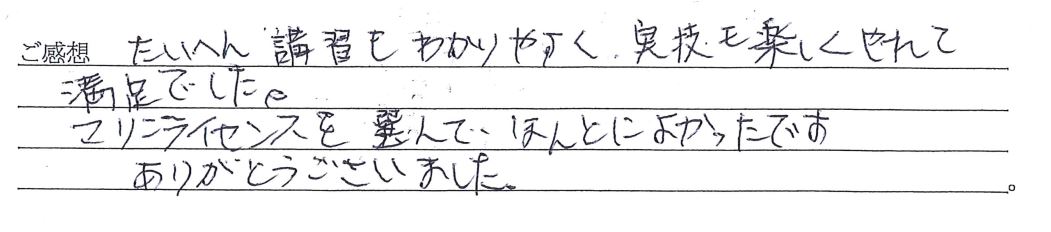 ご感想 たいへん講習もわかりやすく、実技も楽しくやれて
満足でした。
マリンライセンスを選んで ほんとによかったです
ありがとうございました。
。